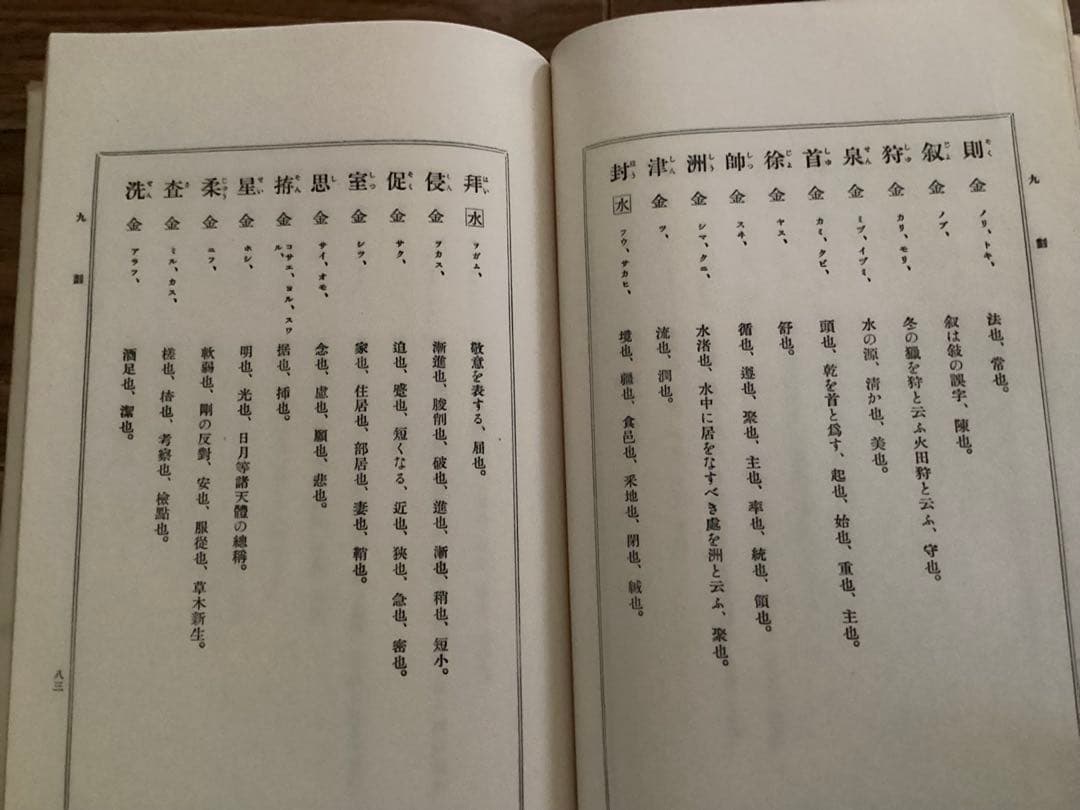 九劃
則 そく 金 ノリ、トキ、 法也、常也。
叙 じよ 金 ノブ、 叙は敍の誤字、陳也。
狩 しゆ 金 カリ、モリ、 冬の獵を狩と云ふ火田狩と云ふ、守也。
泉 せん 金 ミヅ、イヅミ、 水の源、清か也、美也。
首 しゆ 金 カミ、クビ、 頭也、乾を首と爲す、起也、始也、重也、主也。
徐 じよ 金 ヤス、 舒也。
帥 しつ 金 スヰ、 循也、遵也、聚也、主也、率也、統也、領也。
洲 しう 金 シマ、クニ、 水渚也、水中に居をなすべき處を洲と云ふ、聚也。
津 しん 金 ツ、 流也、潤也。
封 ほう 水 フウ、サカヒ、 境也、疆也、食邑也、采地也、閉也、緘也。
拜 はい 水 ヲガム、 敬意を表する、屈也。
侵 しん 金 ヲカス、 漸進也、駿削也、破也、進也、漸也、稍也、短小。
促 そく 金 サク、 迫也、蹙也、短くなる、近也、狹也、急也、密也。
室 しつ 金 シツ、 家也、住居也、部居也、妻也、鞘也。
思 し 金 サイ、オモ、 念也、慮也、願也、悲也。
拵 そん 金 コサエ、ヨル、スワル、 据也、挿也。
星 せい 金 ホシ、 明也、光也、日月等諸天體の總稱。
柔 じゆう 金 ニフ、 軟弱也、剛の反對、安也、服從也、草木新生。
査 さ 金 ミル、カス、 槎也、楂也、考察也、檢點也。
洗 せん 金 アラフ、 酒足也、潔也。
九劃
八三